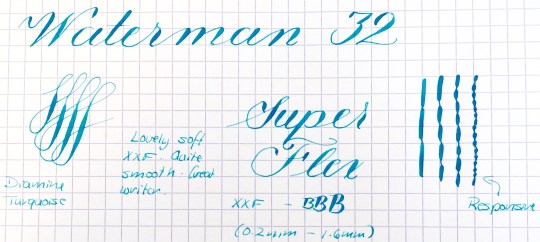 Waterman 32
Lovely soft
XXF. Quite
smooth. Great
writer.
Super
Flex
XXF - BBB
(0.2mm - 1.6mm)
Diamine
Turquoise
Responsive